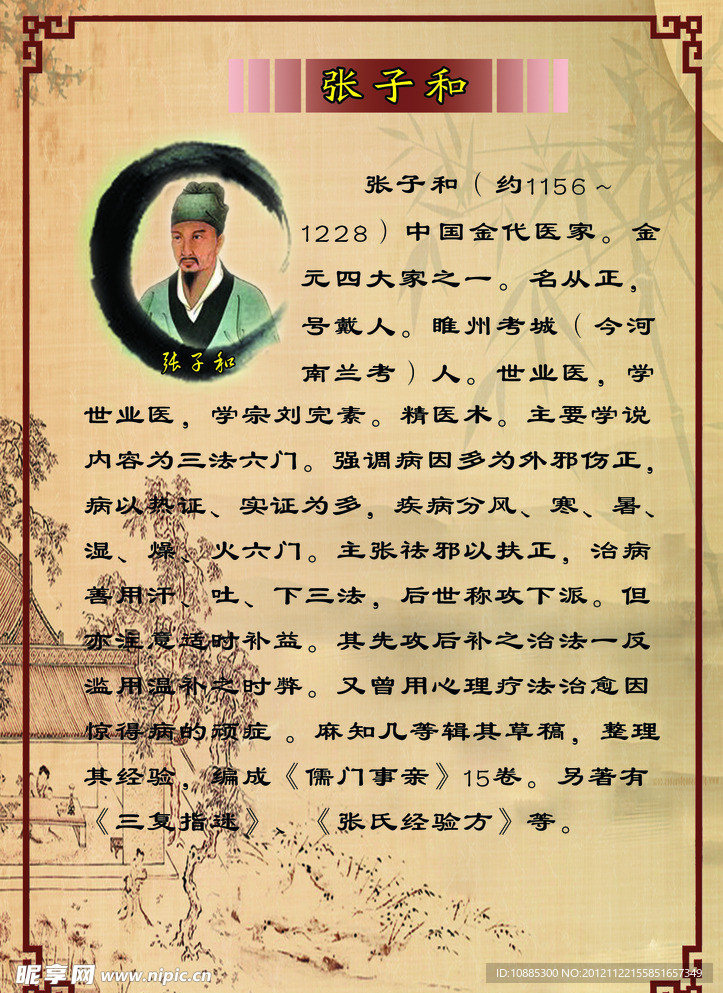 张子和
张子和（约1156～
1228）中国金代医家。金
元四大家之一。名从正，
号戴人。睢州考城（今河
南兰考）人。世业医，学
张子和
世业医，学宗刘完素。精医术。主要学说
内容为三法六门。强调病因多为外邪伤正，
病以热证、实证为多，疾病分风、寒、暑、
湿、燥、火六门。主张祛邪以扶正，治病
善用汗、吐、下三法，后世称攻下派。但
亦注意适时补益。其先攻后补之治法一反
滥用温补之时弊。又曾用心理疗法治愈因
惊得病的顽症。麻知几等辑其草稿，整理
其经验，编成《儒门事亲》15卷。另著有
《三复指迷》、《张氏经验方》等。
昵享网 www.nipic.cn
ID:10885300 NO:20121122155851657349